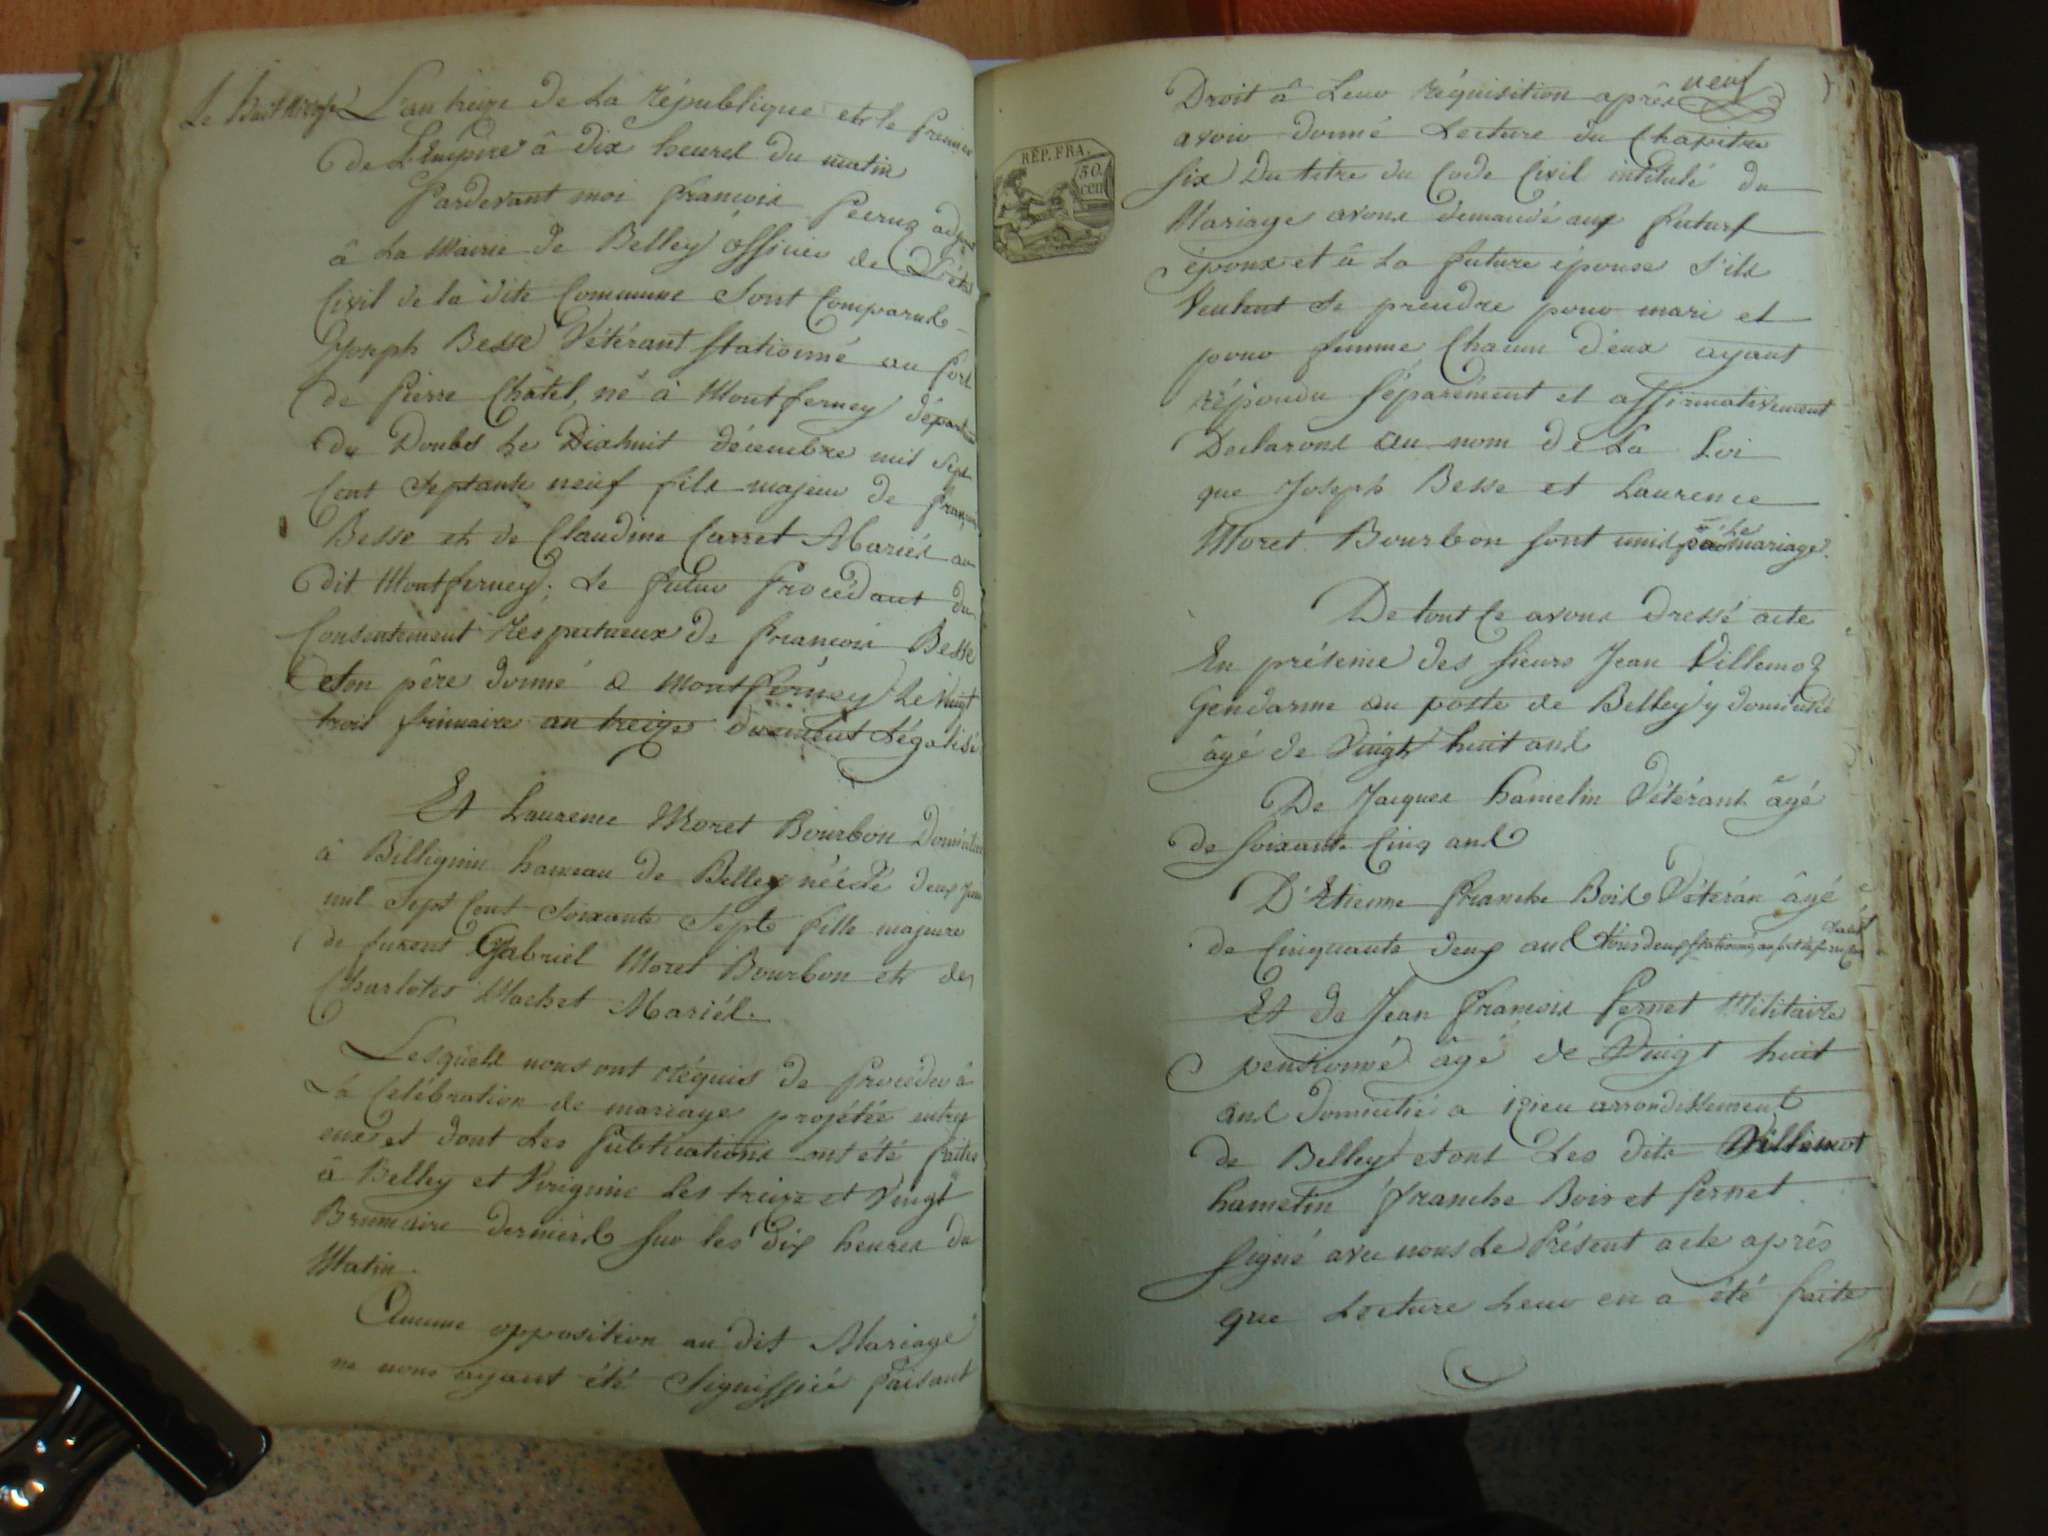 Le huit nivose L'an treize de la république et le premier
de L'Empire à dix heures du matin
Pardevant moi françois Peeruz adjoint
à la Mairie de Belley officier de L'état
Civil de la dite Commune Sont Comparus
Joseph Besse Vétérant Stationné au fort
de Pierre Châtel, né à Montferney départ
du Doubs le Dixhuit décembre mil Sept
Cent Septante neuf fils majeur de françois
Besse et de Claudine Carret Mariés au
dit Montferney. Le futur Procédant du
Consentement respectueux de françois Besse
Son père donné a Montferney le Vingt
trois frimaire an treize duement Légalisé
Et Laurence Moret Bourbon Domiciliée
à Billignin hameau de Belley née le deux
mil Sept Cent Soixante Sept fille majeure
de furent Gabriel Moret Bourbon et de
Charlotes Machet Mariés.
Lesquels nous ont réquis de Procéder à
La Celébration de mariage projétée entre
eux et dont Les Publications ont été faites
à Belley et Virignin les treize et Vingt
Brumaire derniers sur les dix heures du
Matin.
Aucune opposition au dit Mariage
ne nous ayant été Signiffiée faisant
neuf
Droit à Leur réquisition après
avoir donné Lecture du Chapitre
Six Du titre du Code Civil intitulé du
Mariage avons demandé aux futurs
époux et à La future épouse S'ils
Veulent se prendre pour mari et
pour femme, Chacun d'eux ayant
répondu Séparément et affirmativement
Déclarons au nom de La Loi
que Joseph Besse et Laurence
Moret Bourbon sont unis par le mariage.
De tout Ce avons dressé acte
En présence des Sieurs Jean Villemoz
Gendarme au poste de Belley y domicilié
âgé de Vingt huit ans
De Jacques hamelin Vétérant âgé
de Soixante Cinq ans
D'Etienne franche Bois Vétéran âgé
de Cinquante deux ans tous deux stationnés au fort de pierre
Chatel
Et de Jean françois Pernet Militaire
pensionné âgé de Vingt huit
ans Domicilié a izieu arrondissement
de Belley et ont Les dits Villemot
hamelin franche Bois et Pernet
Signé avec nous Le Présent acte après
que Lecture Leur en a été faite
RÉP. FRA.
50
cen